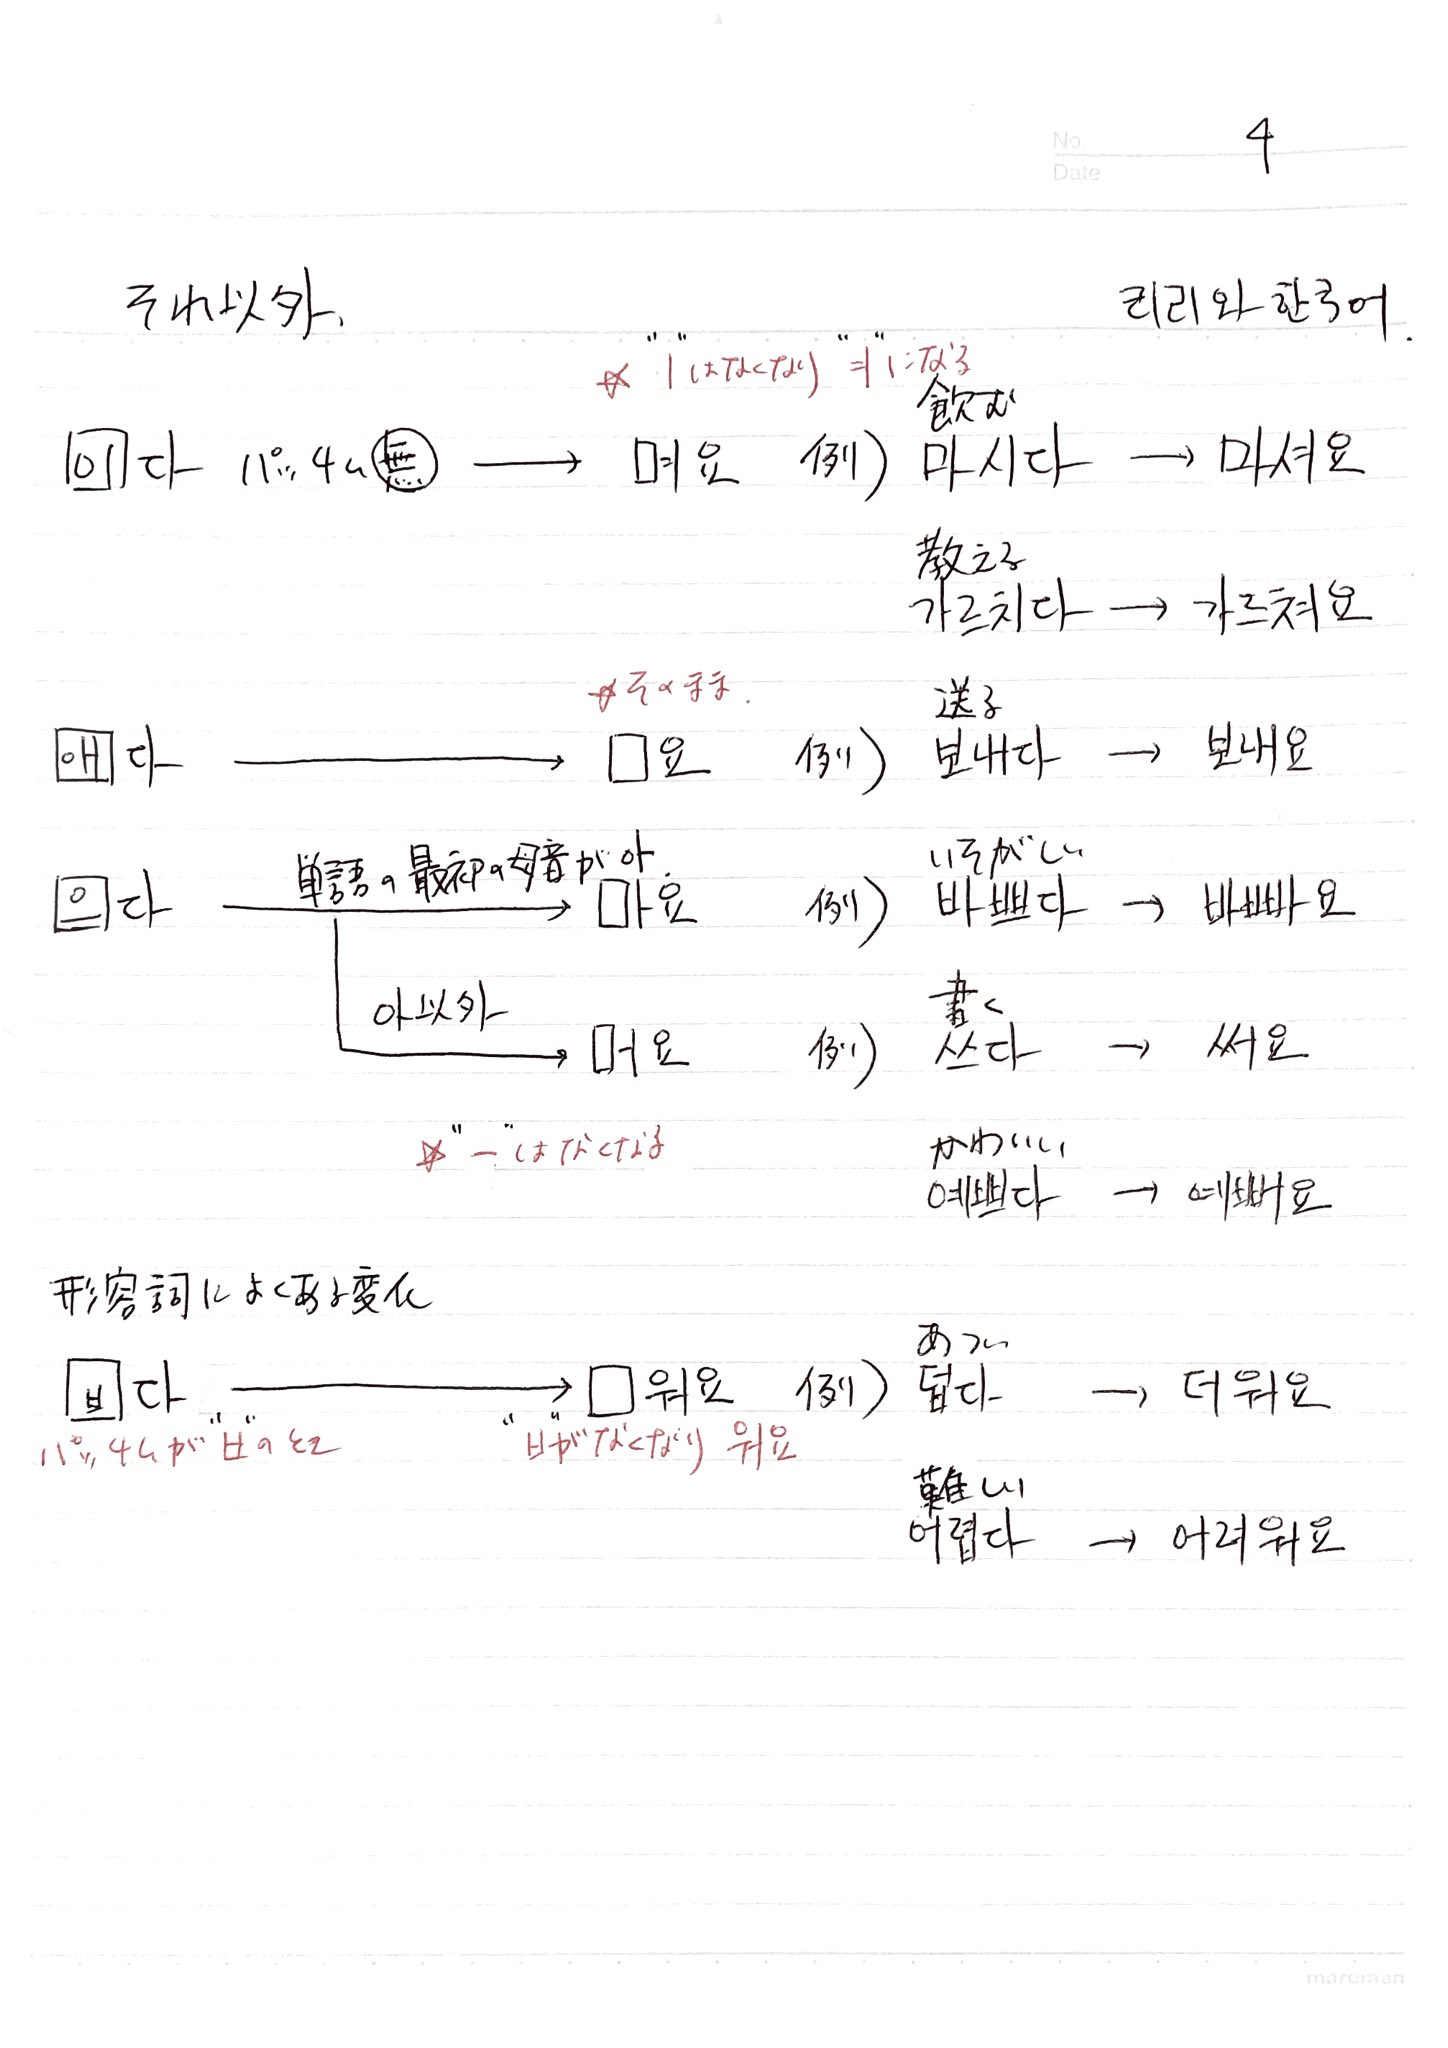 No. 4
Date
それ以外、
리리와 한국어.
☆ "ㅣ"はなくなり "ㅕ"になる
飲む
이다 パッチム無 → □ㅕ요 例) 마시다 → 마셔요
教える
가르치다 → 가르쳐요
☆そのまま.
送る
애다 → □요 例) 보내다 → 보내요
単語の最初の母音が아.
いそがしい
으다 → □ㅏ요 例) 바쁘다 → 바빠요
아以外
書く
□ㅓ요 例) 쓰다 → 써요
☆"ㅡ"はなくなる
かわいい
예쁘다 → 예뻐요
形容詞によくある変化
あつい
ㅂ다 → □워요 例) 덥다 → 더워요
パッチムが"ㅂ"のとき "ㅂ"がなくなり 워요
難しい
어렵다 → 어려워요
maruman